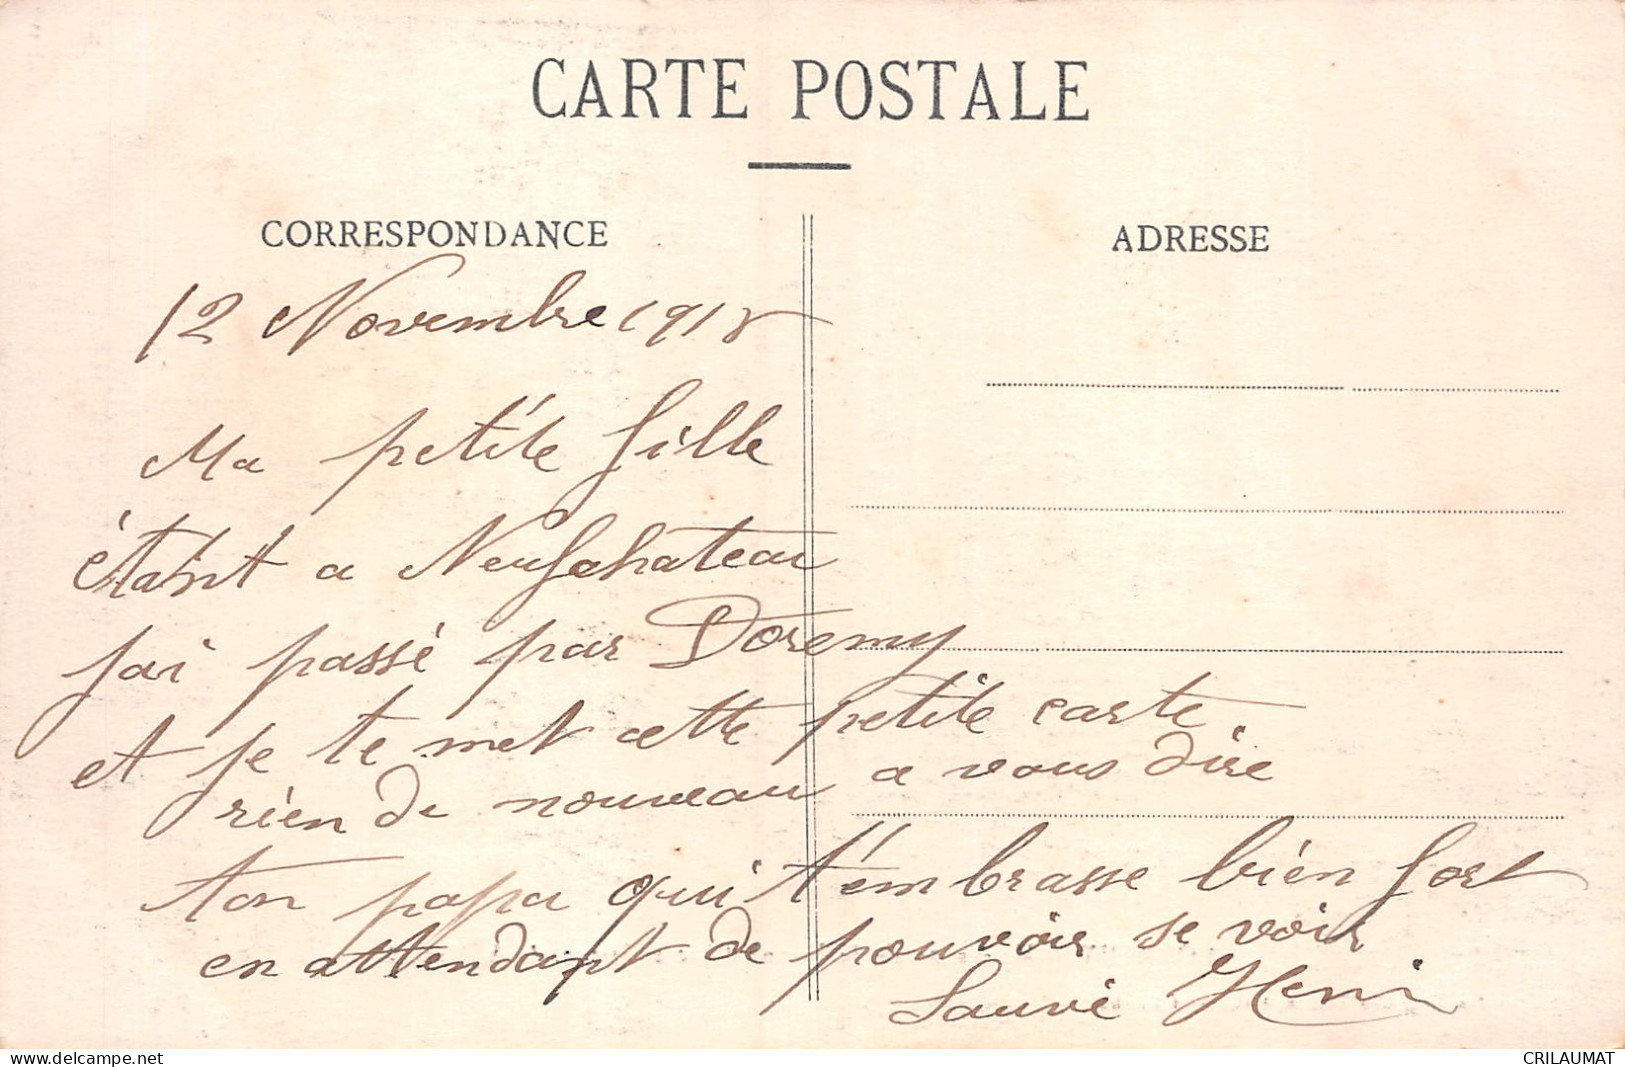 CARTE POSTALE
CORRESPONDANCE
ADRESSE
12 Novembre 1918
Ma petite fille
étant a Neufchateau
jai passé par Doremy
et je te met cette petite carte.
rien de nouveau a vous dire
ton papa qui t'embrasse bien fort
en attendant de pouvoir se voir
Sauvé Henri
http://www.delcampe.net
CRILAUMAT